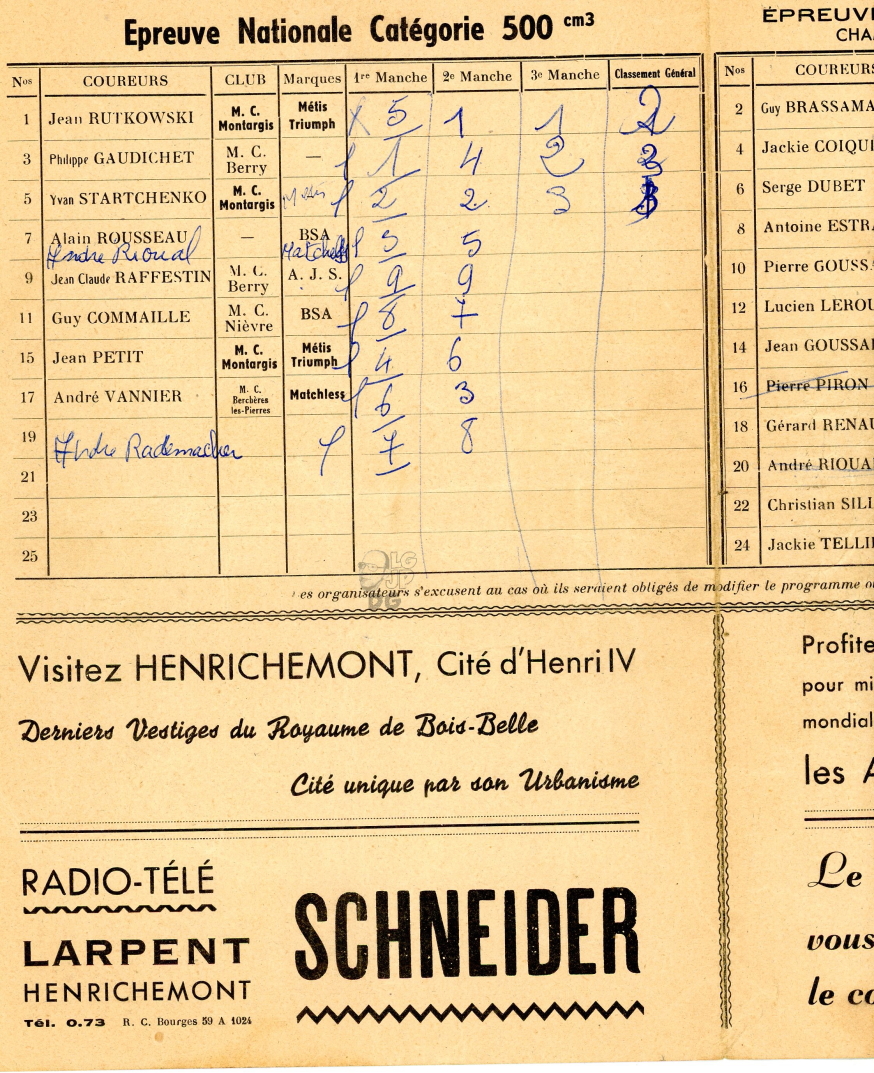 Epreuve Nationale Catégorie 500 cm3
Nos COUREURS CLUB Marques 1re Manche 2e Manche 3e Manche Classement Général
1 Jean RUTKOWSKI M. C. Montargis Métis Triumph X 5 1 1 2
3 Philippe GAUDICHET M. C. Berry — 1 4 2
5 Yvan STARTCHENKO M. C. Montargis 2 2 3
7 Alain ROUSSEAU — BSA 5
Andre Rioual Matchless
9 Jean Claude RAFFESTIN M. C. Berry A. J. S. 9 9
11 Guy COMMAILLE M. C. Nièvre BSA 8 7
15 Jean PETIT M. C. Montargis Métis Triumph 4 6
17 André VANNIER M. C. Berchères les-Pierres Matchless 6 3
19 Andre Rademacher 7 8
21
23
25
es organisateurs s'excusent au cas où ils seraient obligés de modifier le programme
LG
JP
DG
Visitez HENRICHEMONT, Cité d'Henri IV
Derniers Vestiges du Royaume de Bois-Belle
Cité unique par son Urbanisme
RADIO-TÉLÉ
LARPENT
HENRICHEMONT
Tél. 0.73 R. C. Bourges 59 A 1024
SCHNEIDER
ÉPREUV
CHA
Nos COUREURS
2 Guy BRASSAMA
4 Jackie COIQU
6 Serge DUBET
8 Antoine ESTR
10 Pierre GOUSS
12 Lucien LEROU
14 Jean GOUSSA
16 Pierre PIRON
18 Gérard RENAU
20 André RIOUA
22 Christian SILL
24 Jackie TELLI
Profite
pour mi
mondial
les A
Le
vous
le co